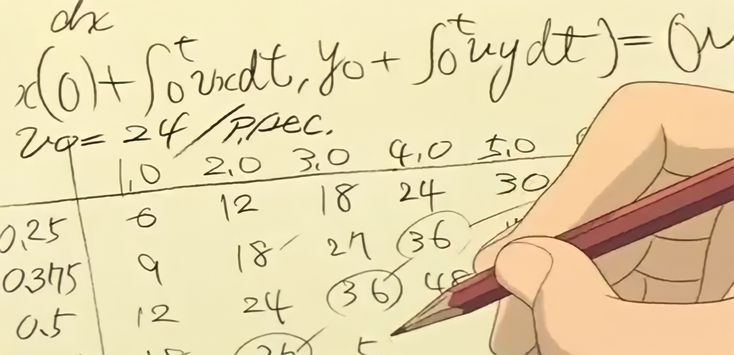 dx
x(0)+∫₀ᵗvxdt, y₀+∫₀ᵗvydt)=(
v₀= 24 /P,Psec.
1,0 2,0 3,0 4,0 5,0
0,25 6 12 18 24 30
0.375 9 18 27 36
0.5 12 24 36 48
36